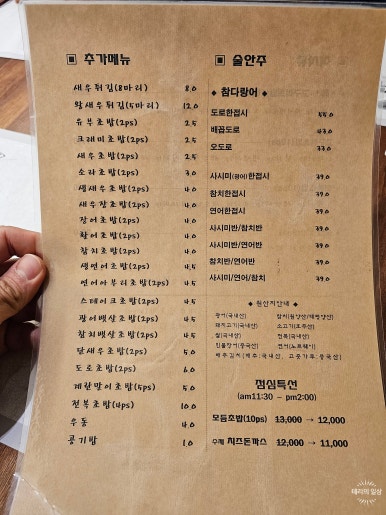 ▣ 추가메뉴
새우튀김(8마리) 8.0
왕새우튀김(5마리) 12.0
유부초밥(2ps) 2.5
크래미초밥(2ps) 2.5
새우초밥(2ps) 2.5
소라초밥(2ps) 3.0
생새우초밥(2ps) 4.5
새우장초밥(2ps) 4.5
장어초밥(2ps) 4.5
광어초밥(2ps) 4.0
참치초밥(2ps) 4.0
생연어초밥(2ps) 4.5
연어아부리초밥(2ps) 4.5
스테이크초밥(2ps) 4.5
광어뱃살초밥(2ps) 4.5
참치뱃살초밥(2ps) 4.5
단새우초밥(2ps) 5.0
도로초밥(2ps) 6.0
계란말이초밥(5ps) 5.0
전복초밥(4ps) 10.0
우동 4.0
공기밥 1.0
▣ 술안주
◆ 참다랑어 ◆
도로한접시 55.0
배꼽도로 43.0
오도로 33.0
사시미(광어)한접시 39.0
참치한접시 39.0
연어한접시 39.0
사시미반/참치반 39.0
사시미반/연어반 39.0
참치반/연어반 39.0
사시미/연어/참치 39.0
◆ 원산지안내 ◆
광어(국내산) 참치(원양산/태평양산)
돼지고기(국내산) 소고기(호주산)
쌀(국내산) 전복(국내산)
민물장어(중국산) 연어(노르웨이)
배추김치(배추:국내산, 고춧가루:중국산)
점심특선
(am11:30 - pm2:00)
모듬초밥(10ps) 13,000 → 12,000
수제 치즈돈까스 12,000 → 11,000
테리의 일상